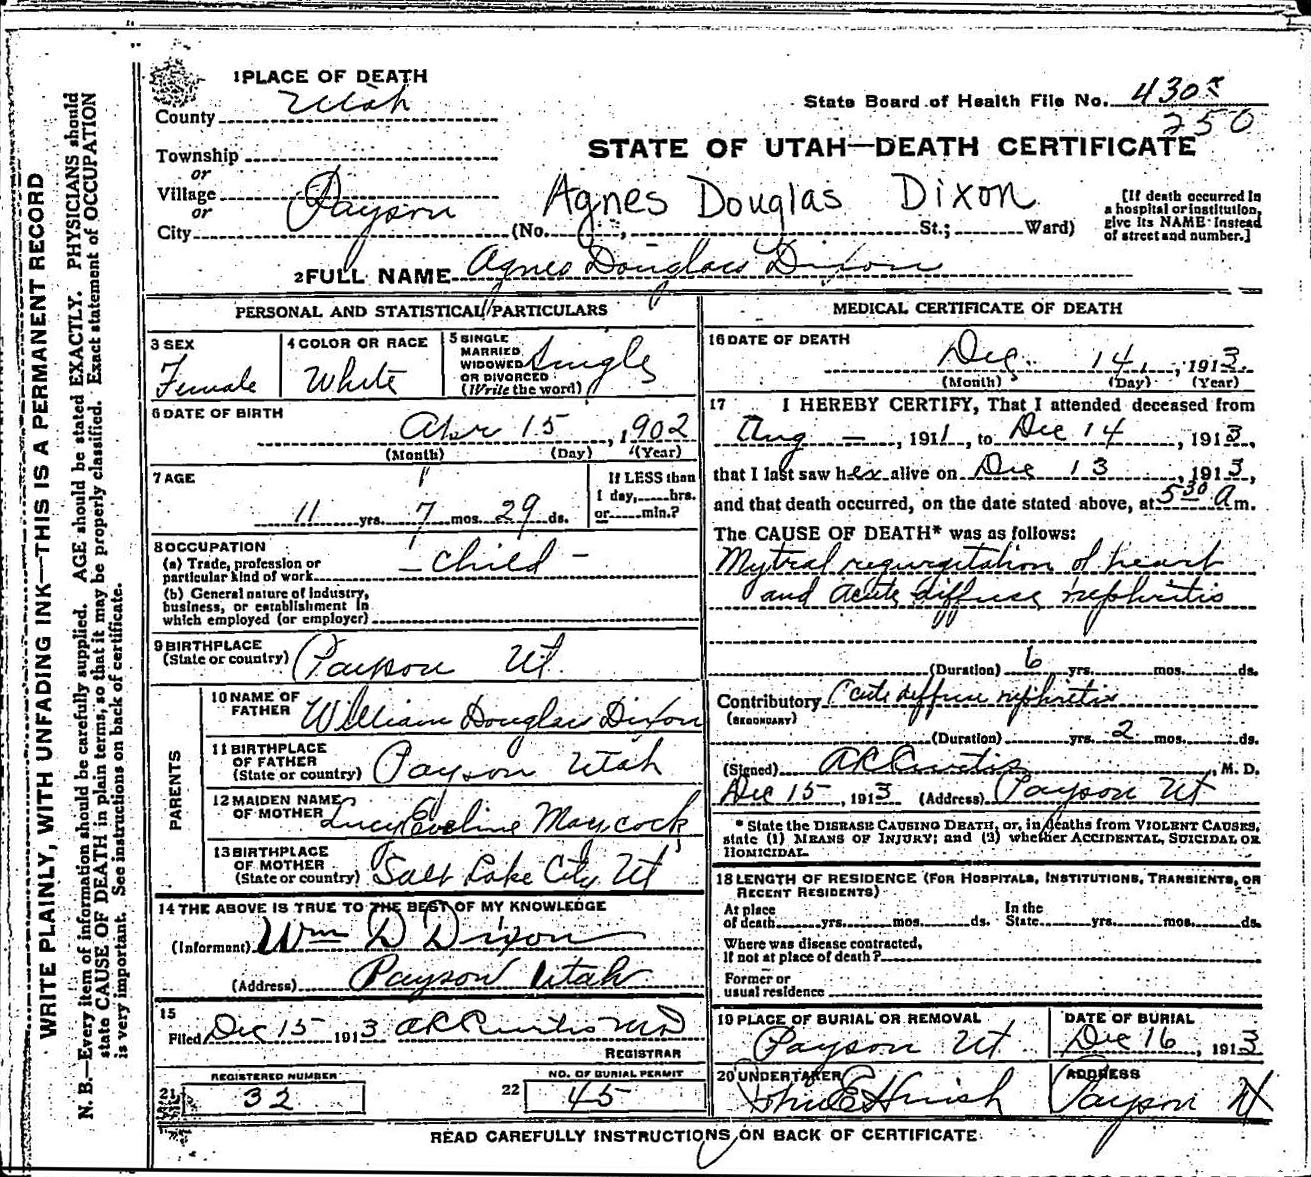 1 PLACE OF DEATH
County Utah
State Board of Health File No. 430
250
STATE OF UTAH—DEATH CERTIFICATE
Township
or
Village
or
City Payson (No. , St.; Ward)
Agnes Douglas Dixon
[If death occurred in
a hospital or institution,
give its NAME instead
of street and number.]
2 FULL NAME Agnes Douglass Dixon
PERSONAL AND STATISTICAL PARTICULARS
3 SEX
Female
4 COLOR OR RACE
White
5 SINGLE
MARRIED
WIDOWED
OR DIVORCED
(Write the word)
Single
6 DATE OF BIRTH
Apr 15, 1902
(Month) (Day) (Year)
7 AGE
11 yrs. 7 mos. 29 ds.
If LESS than
1 day, hrs.
or min.?
8 OCCUPATION
(a) Trade, profession or
particular kind of work
- Child -
(b) General nature of industry,
business, or establishment in
which employed (or employer)
9 BIRTHPLACE
(State or country) Payson Ut.
PARENTS
10 NAME OF
FATHER William Douglass Dixon
11 BIRTHPLACE
OF FATHER
(State or country) Payson Utah
12 MAIDEN NAME
OF MOTHER Lucy Eveline Maycock
13 BIRTHPLACE
OF MOTHER
(State or country) Salt Lake City Ut
14 THE ABOVE IS TRUE TO THE BEST OF MY KNOWLEDGE
(Informant) Wm D Dixon
(Address) Payson Utah
15
Filed Dec 15 1913 A R Curtis MD
REGISTRAR
21 REGISTERED NUMBER
32
22 NO. OF BURIAL PERMIT
45
MEDICAL CERTIFICATE OF DEATH
16 DATE OF DEATH
Dec. 14, 1913.
(Month) (Day) (Year)
17 I HEREBY CERTIFY, That I attended deceased from
Aug —, 1911, to Dec 14, 1913,
that I last saw her alive on Dec 13, 1913,
and that death occurred, on the date stated above, at 5 30 A m.
The CAUSE OF DEATH* was as follows:
Mytral regurgitation of heart
and acute diffuse nephritis
(Duration) 6 yrs. mos. ds.
Contributory Acute diffuse nephritis
(SECONDARY)
(Duration) yrs. 2 mos. ds.
(Signed) A R Curtis, M. D.
Dec 15, 1913 (Address) Payson Ut
* State the DISEASE CAUSING DEATH, or, in deaths from VIOLENT CAUSES,
state (1) MEANS OF INJURY; and (2) whether ACCIDENTAL, SUICIDAL OR
HOMICIDAL.
18 LENGTH OF RESIDENCE (FOR HOSPITALS, INSTITUTIONS, TRANSIENTS, OR
RECENT RESIDENTS)
At place
of death yrs. mos. ds.
In the
State yrs. mos. ds.
Where was disease contracted,
If not at place of death?
Former or
usual residence
19 PLACE OF BURIAL OR REMOVAL
Payson Ut
DATE OF BURIAL
Dec 16, 1913
20 UNDERTAKER
John E Huish
ADDRESS
Payson Ut
READ CAREFULLY INSTRUCTIONS ON BACK OF CERTIFICATE
WRITE PLAINLY, WITH UNFADING INK—THIS IS A PERMANENT RECORD
N. B.—Every item of information should be carefully supplied. AGE should be stated EXACTLY. PHYSICIANS should
state CAUSE OF DEATH in plain terms, so that it may be properly classified. Exact statement of OCCUPATION
is very important. See instructions on back of certificate.